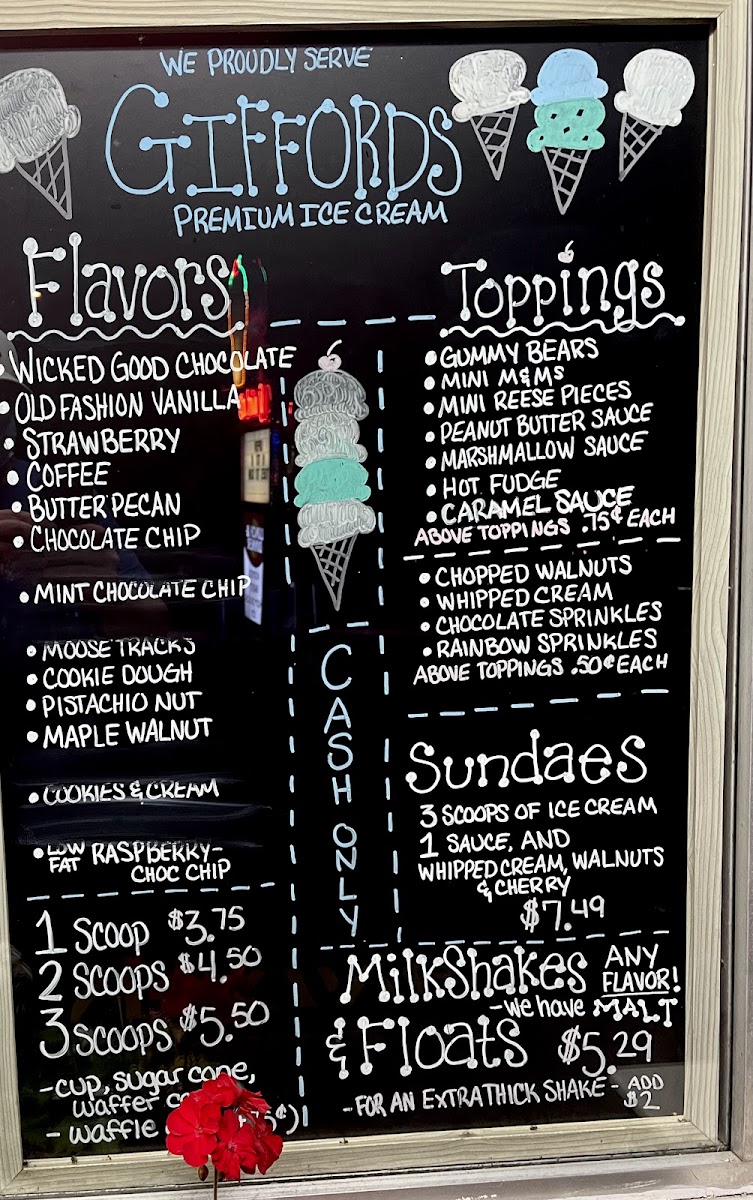 WE PROUDLY SERVE
GIFFORDS
PREMIUM ICE CREAM
Flavors
• WICKED GOOD CHOCOLATE
• OLD FASHION VANILLA
• STRAWBERRY
• COFFEE
• BUTTER PECAN
• CHOCOLATE CHIP
• MINT CHOCOLATE CHIP
• MOOSE TRACKS
• COOKIE DOUGH
• PISTACHIO NUT
• MAPLE WALNUT
• COOKIES & CREAM
• LOW FAT RASPBERRY-
CHOC CHIP
1 SCOOP $3.75
2 SCOOPS $4.50
3 SCOOPS $5.50
-cup, sugar cone,
waffer
- waffle
CASH ONLY
Toppings
• GUMMY BEARS
• MINI M&Ms
• MINI REESE PIECES
• PEANUT BUTTER SAUCE
• MARSHMALLOW SAUCE
• HOT FUDGE
• CARAMEL SAUCE
ABOVE TOPPINGS .75¢ EACH
• CHOPPED WALNUTS
• WHIPPED CREAM
• CHOCOLATE SPRINKLES
• RAINBOW SPRINKLES
ABOVE TOPPINGS .50¢ EACH
Sundaes
3 SCOOPS OF ICE CREAM
1 SAUCE, AND
WHIPPED CREAM, WALNUTS
& CHERRY
$7.49
MilkShakes ANY FLAVOR!
-we have MALT
& Floats $5.29
-FOR AN EXTRA THICK SHAKE- ADD $2